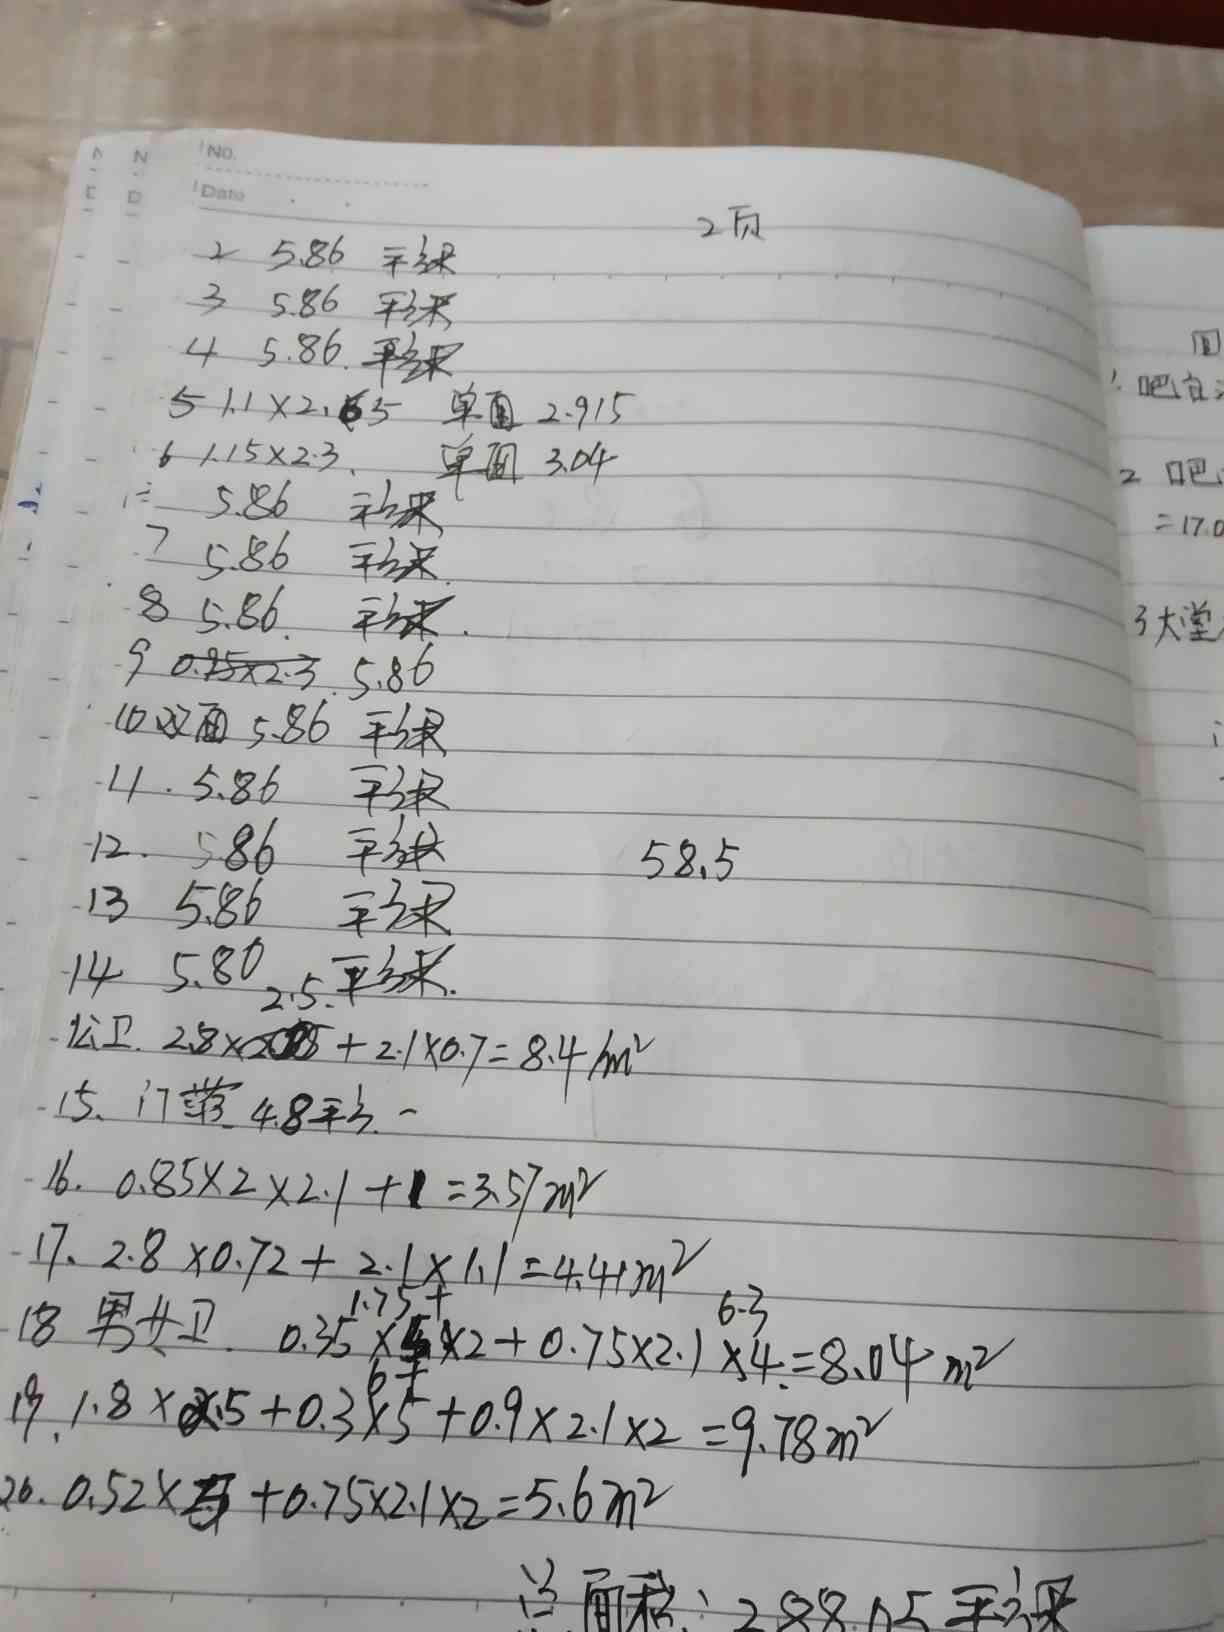 No.
Date
2页
2 5.86 平方米
3 5.86 平方米
4 5.86. 平方米
5 1.1×2.65 单面 2.915
6 1.15×2.3. 单面 3.04
5.86 平方米
7 5.86 平方米.
8 5.86. 平方米.
9 0.95×2.3 5.86
10 双面 5.86 平方米
11. 5.86 平方米
12. 5.86 平方米 58.5
13 5.86 平方米
14 5.86 平方米.
2.5.
公卫. 2.8× + 2.1×0.7=8.4/m²
15. 门 4.8平方.
16. 0.85×2×2.1+1=3.57m²
17. 2.8×0.72+2.1×1.1=4.41m²
1.75+ 6.3
18 男女卫. 0.35×5×2+0.75×2.1×4.=8.04m²
6+
19. 1.8×2.5+0.3×5+0.9×2.1×2=9.78m²
20. 0.52×5+0.75×2.1×2=5.6m²
总面积: 288.05平方米
1. 吧台
2 吧
=17.0
3 大堂